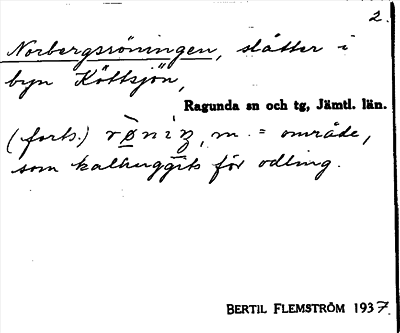 2.
Norbergsröningen, slåtter i
byn Köttsjön,
Ragunda sn och tg, Jämtl. län.
(forts.) , m. = område,
som kalhuggits för odling.
BERTIL FLEMSTRÖM 1937.